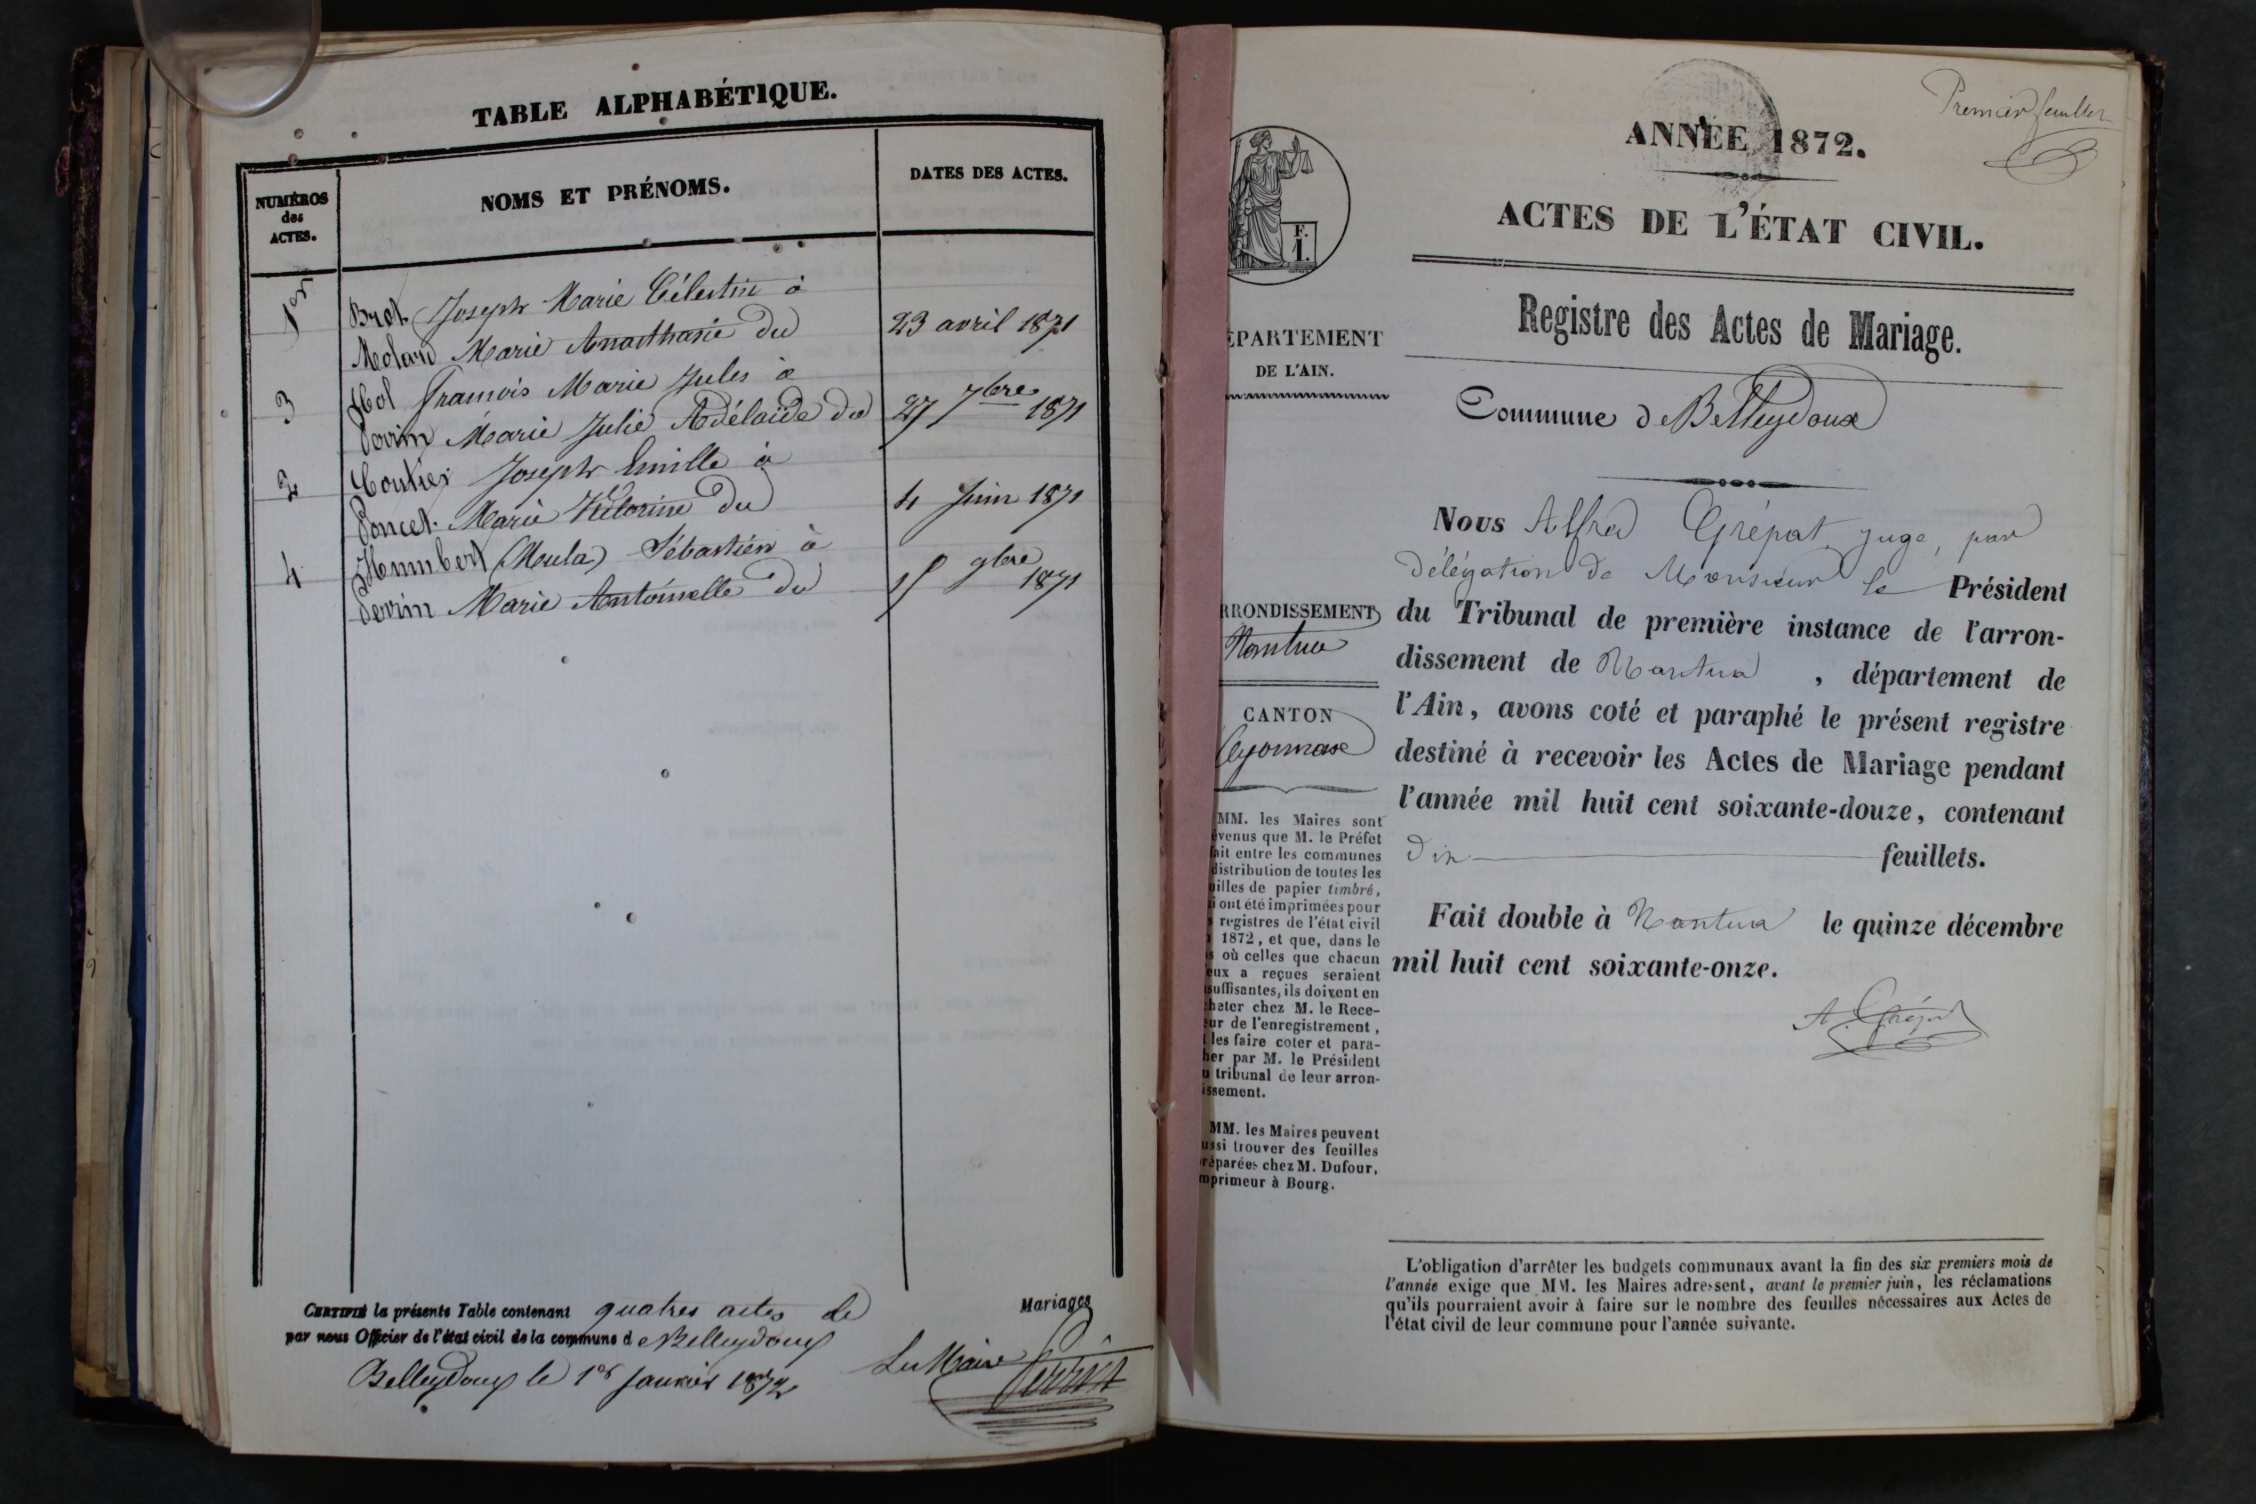 TABLE ALPHABÉTIQUE.
NUMÉROS
des
ACTES.
NOMS ET PRÉNOMS.
DATES DES ACTES.
1er
Bret Joseph Marie Célestin à
Molard Marie Anasthasie du
23 avril 1871
3
Hol François Marie Jules à
Perrin Marie Julie Adélaïde du
27 7bre 1871
2
Coutier Joseph Emille à
Poncet Marie Victorine du
4 Juin 1871
4
Humbert (Moula) Sébastien à
Perrin Marie Antoinette du
9bre 1871
CERTIFIÉ la présente Table contenant quatres actes de Mariages
par nous Officier de l'état civil de la commune d Belleydoux
Belleydoux le 1er Janvier 1872
Le Maire
Perrin
Premier feuillet
ANNÉE 1872.
ACTES DE L'ÉTAT CIVIL.
Registre des Actes de Mariage.
F.
1.
ÉPARTEMENT
DE L'AIN.
RRONDISSEMENT
Nantua
CANTON
Oyonnax
MM. les Maires sont
évenus que M. le Préfet
fait entre les communes
distribution de toutes les
uilles de papier timbré,
i ont été imprimées pour
s registres de l'état civil
1872, et que, dans le
s où celles que chacun
eux a reçues seraient
suffisantes, ils doivent en
heter chez M. le Rece-
eur de l'enregistrement,
les faire coter et para-
her par M. le Président
u tribunal de leur arron-
issement.
MM. les Maires peuvent
ussi trouver des feuilles
réparées chez M. Dufour,
mprimeur à Bourg.
Commune de Belleydoux
Nous Alfred Grépat juge, par
délégation de Monsieur le Président
du Tribunal de première instance de l'arron-
dissement de Nantua, département de
l'Ain, avons coté et paraphé le présent registre
destiné à recevoir les Actes de Mariage pendant
l'année mil huit cent soixante-douze, contenant
dix feuillets.
Fait double à Nantua le quinze décembre
mil huit cent soixante-onze.
A. Grépat
L'obligation d'arrêter les budgets communaux avant la fin des six premiers mois de
l'année exige que MM. les Maires adressent, avant le premier juin, les réclamations
qu'ils pourraient avoir à faire sur le nombre des feuilles nécessaires aux Actes de
l'état civil de leur commune pour l'année suivante.